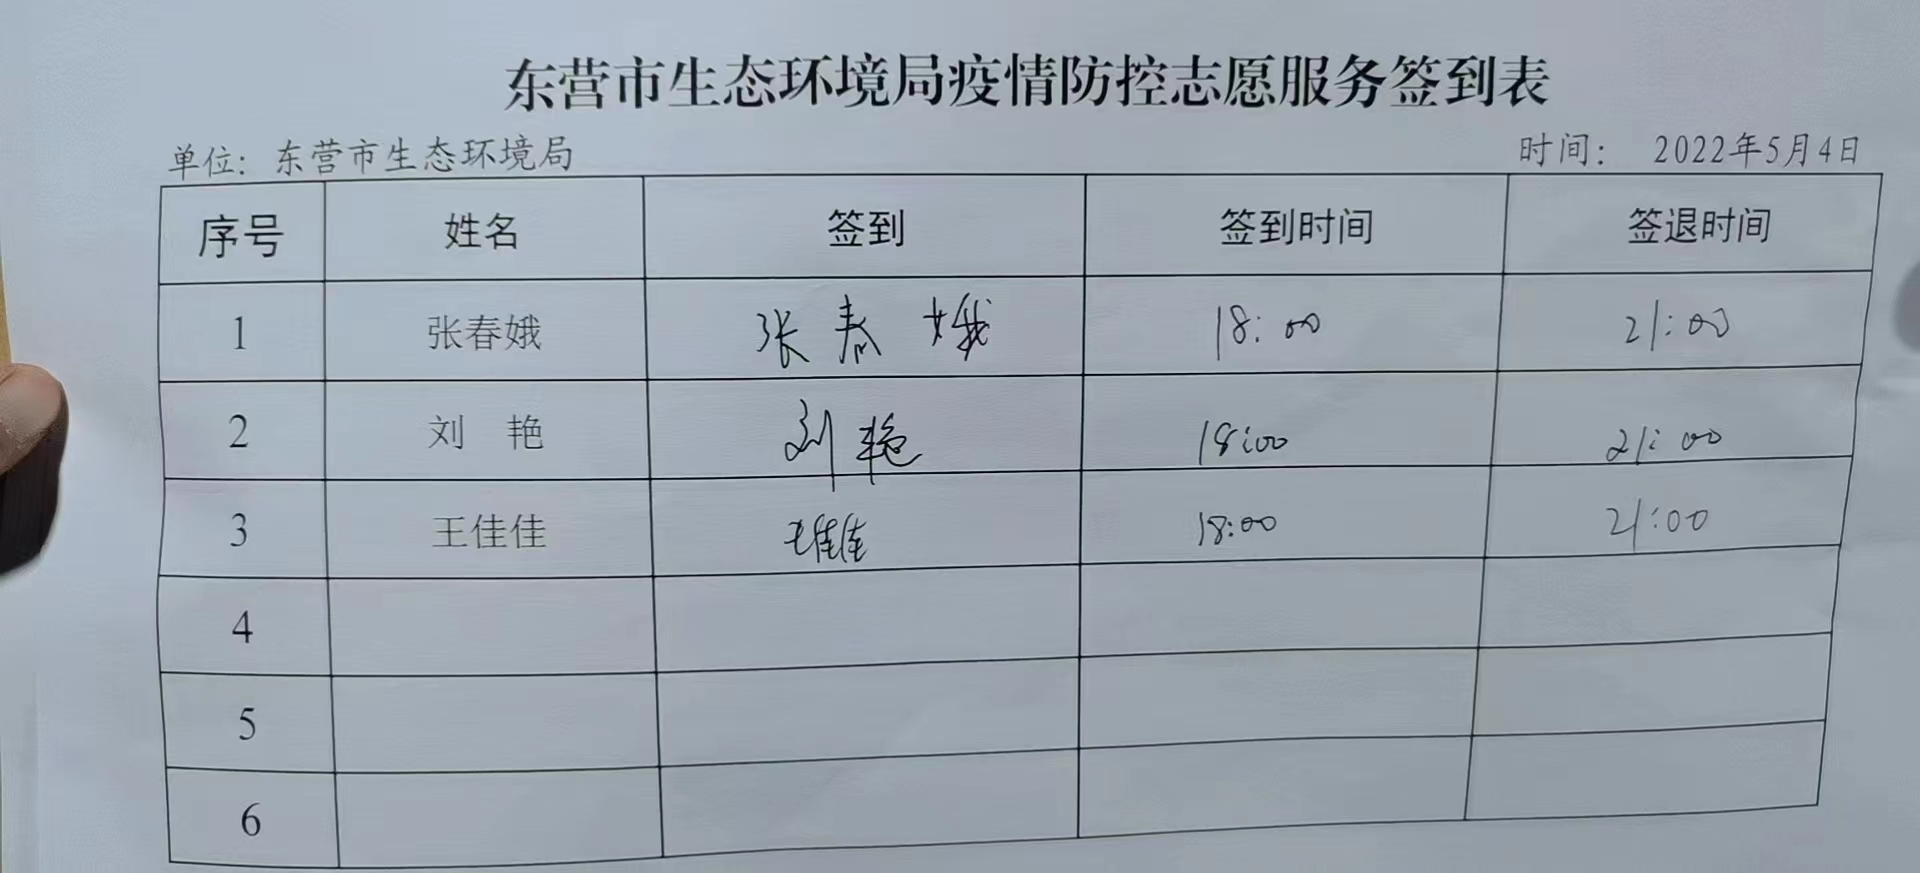 东营市生态环境局疫情防控志愿服务签到表
单位：东营市生态环境局 时间： 2022年5月4日
序号 姓名 签到 签到时间 签退时间
1 张春娥 张春娥 18:00 21:00
2 刘 艳 刘艳 18:00 21:00
3 王佳佳 王佳佳 18:00 21:00
4
5
6